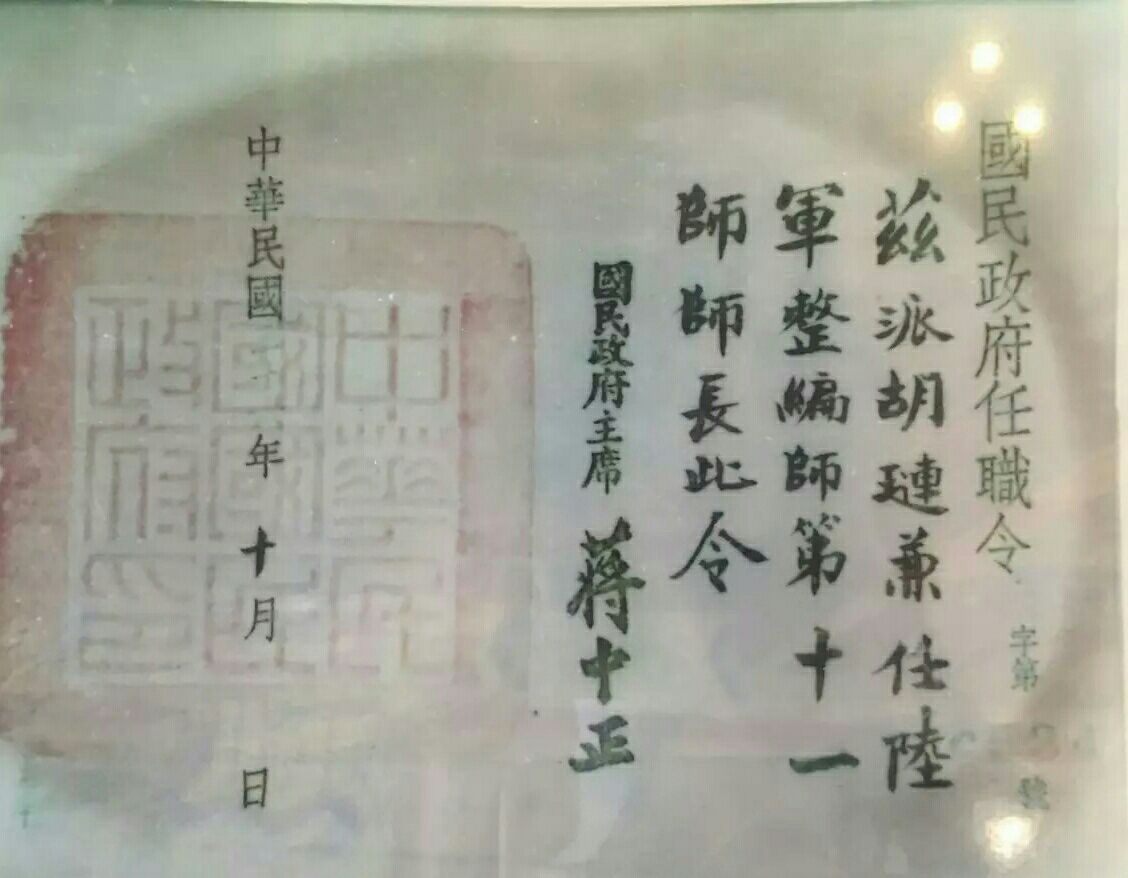 國民政府任職令
字第
號
茲派胡璉兼任陸
軍整編師第十一
師師長此令
國民政府主席 蔣中正
中華民國 年 十月 日
中華民國國民政府印